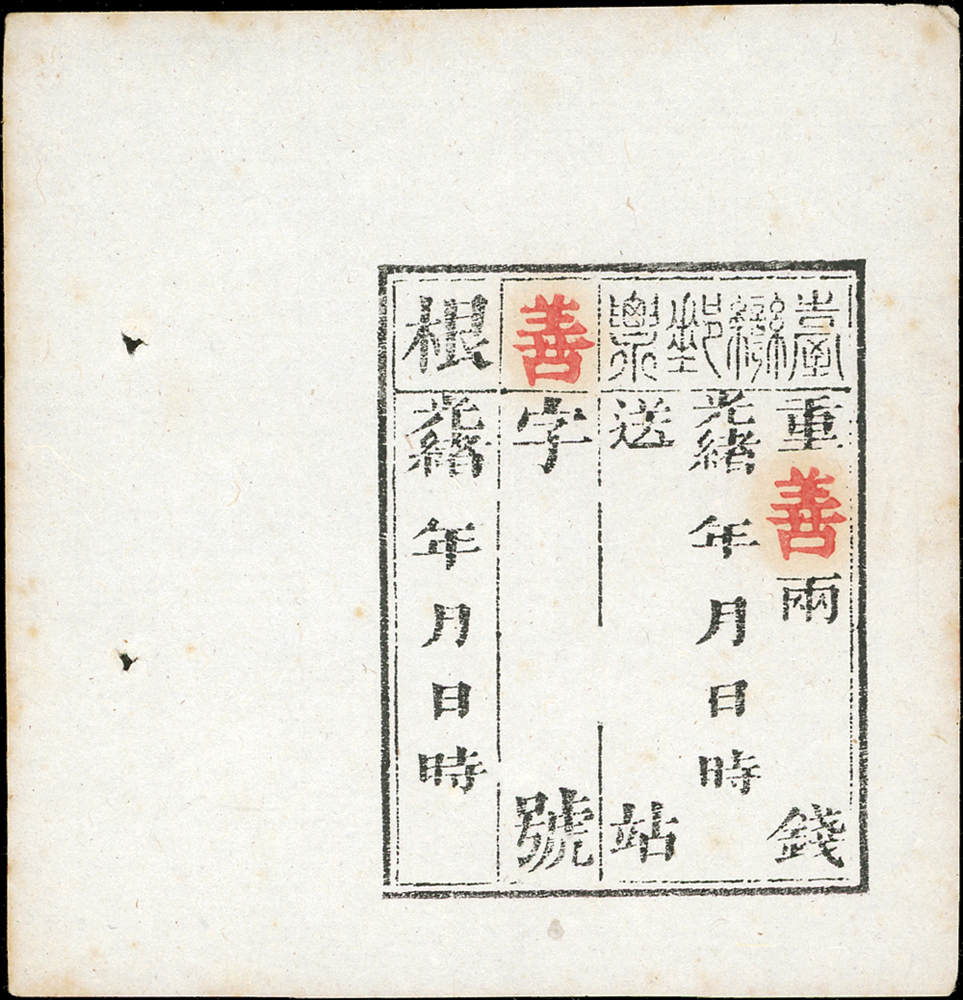 臺灣郵票
重善兩錢
光緒年月日時
送站
善字號
根
光緒年月日時